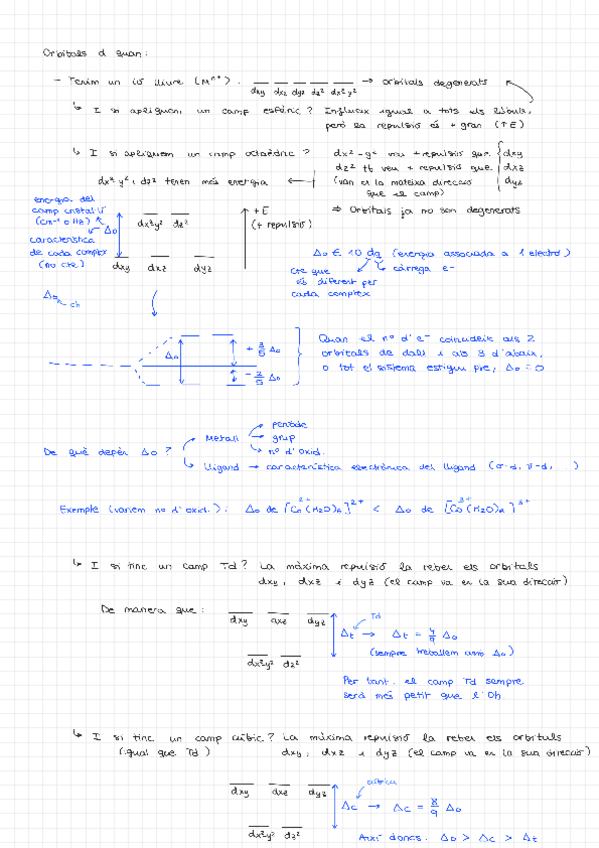 Orbitals d quan:
- Tenim un ió lliure (Mⁿ⁺). dxy dxz dyz dz² dx²y² → orbitals degenerats
↳ I si apliquem un camp esfèric? Influeix igual a tots els lòbuls,
però la repulsió és + gran (↑E)
↳ I si apliquem un camp octaèdric? dx²-y² veu + repulsió que dxy
dz² tb veu + repulsió que dxz
dx²y² i dz² tenen més energia ← (van en la mateixa direcció dyz
que el camp)
energia del
camp cristal·lí
(cm⁻¹ o Hz)
Δo
característica
de cada complex
(no cte)
dx²y² dz²
dxy dxz dyz
+ E
(+ repulsió)
⇒ Orbitals ja no són degenerats
Δo ∈ 10 dq (energia associada a 1 electró)
càrrega e-
cte que
és diferent per
cada complex
Δo
+ 3/5 Δo
- 2/5 Δo
Quan el nº d'e- coincideix als 2
orbitals de dalt i als 3 d'abaix,
o tot el sistema estigui ple, Δo = 0
De què depèn Δo?
Metall
període
grup
nº d'oxid.
lligand → característica electrònica del lligand (σ-d, π-d, )
Exemple (variem nº d'oxid.): Δo de [Co(H₂O)₆]²⁺ < Δo de [Co(H₂O)₆]³⁺
2+ 3+
↳ I si tinc un camp Td? La màxima repulsió la reben els orbitals
dxy, dxz i dyz (el camp va en la seva direcció)
De manera que: dxy dxz dyz
Td
Δt → Δt = 4/9 Δo
(sempre treballem amb Δo)
dx²y² dz²
Per tant, el camp Td sempre
serà més petit que l'Oh
↳ I si tinc un camp cúbic? La màxima repulsió la reben els orbitals
(igual que Td) dxy, dxz i dyz (el camp va en la seva direcció)
cúbica
dxy dxz dyz
Δc → Δc = 8/9 Δo
dx²y² dz²
Així doncs, Δo > Δc > Δt